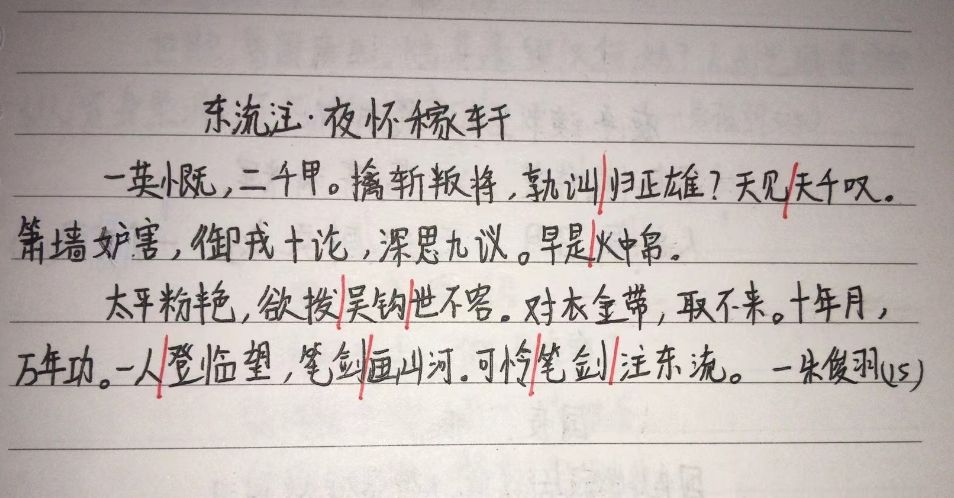 东流注·夜怀稼轩
一英慨,二千甲。擒斩叛将,孰讪/归正雄?天见/天千叹。
箫墙妒害,御戎十论,深思九议。早是/火中帛。
太平粉艳,欲拨/吴钩/世不容。对衣金带,取不来。十年月,
万年功。一人/登临望,笔剑/画山河.可怜/笔剑/注东流。 一朱俊羽(15)